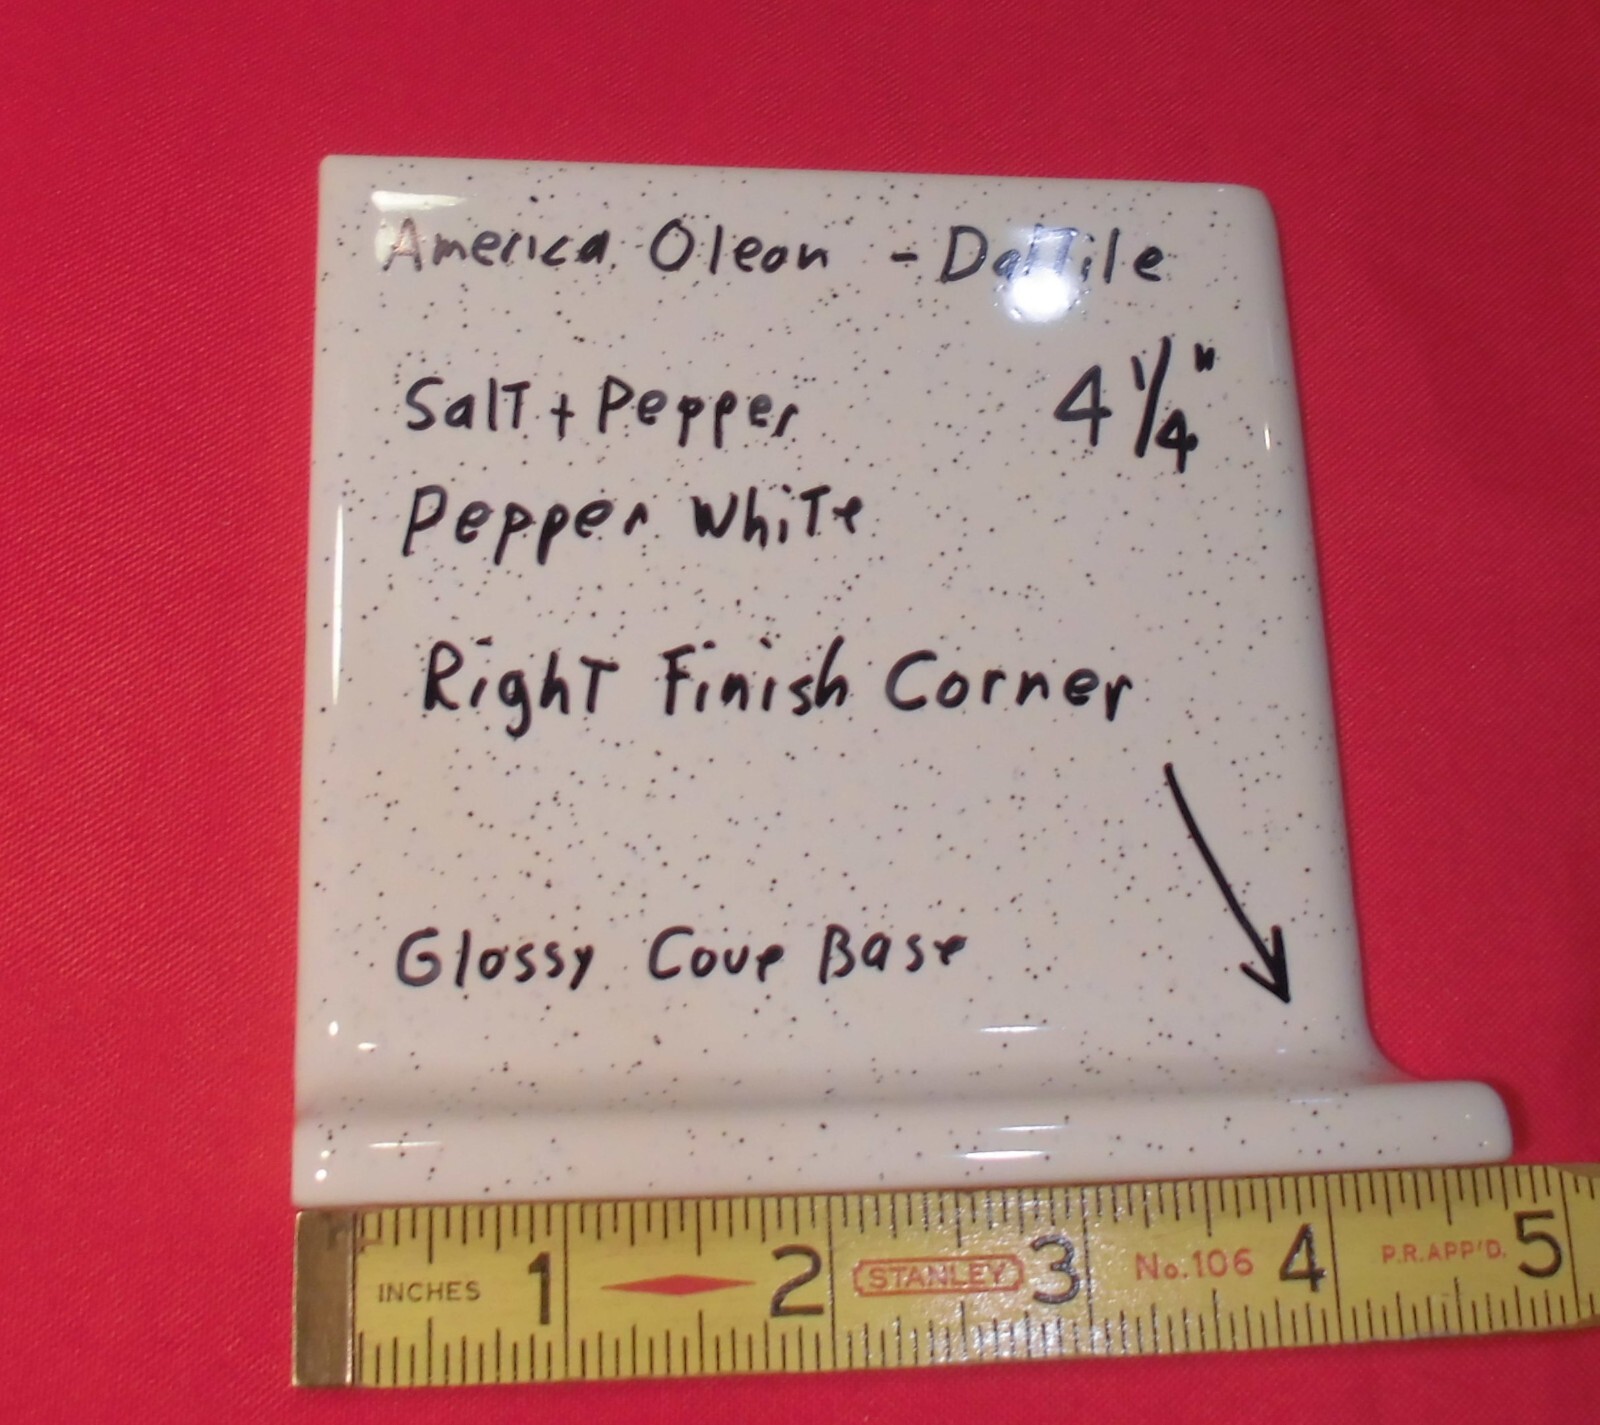 America Olean - DalTile
Salt + Pepper 4 1/4"
Pepper White
Right Finish Corner
Glossy Cove Base
INCHES 1 2 STANLEY 3 No.106 4 P.R.APP'D. 5